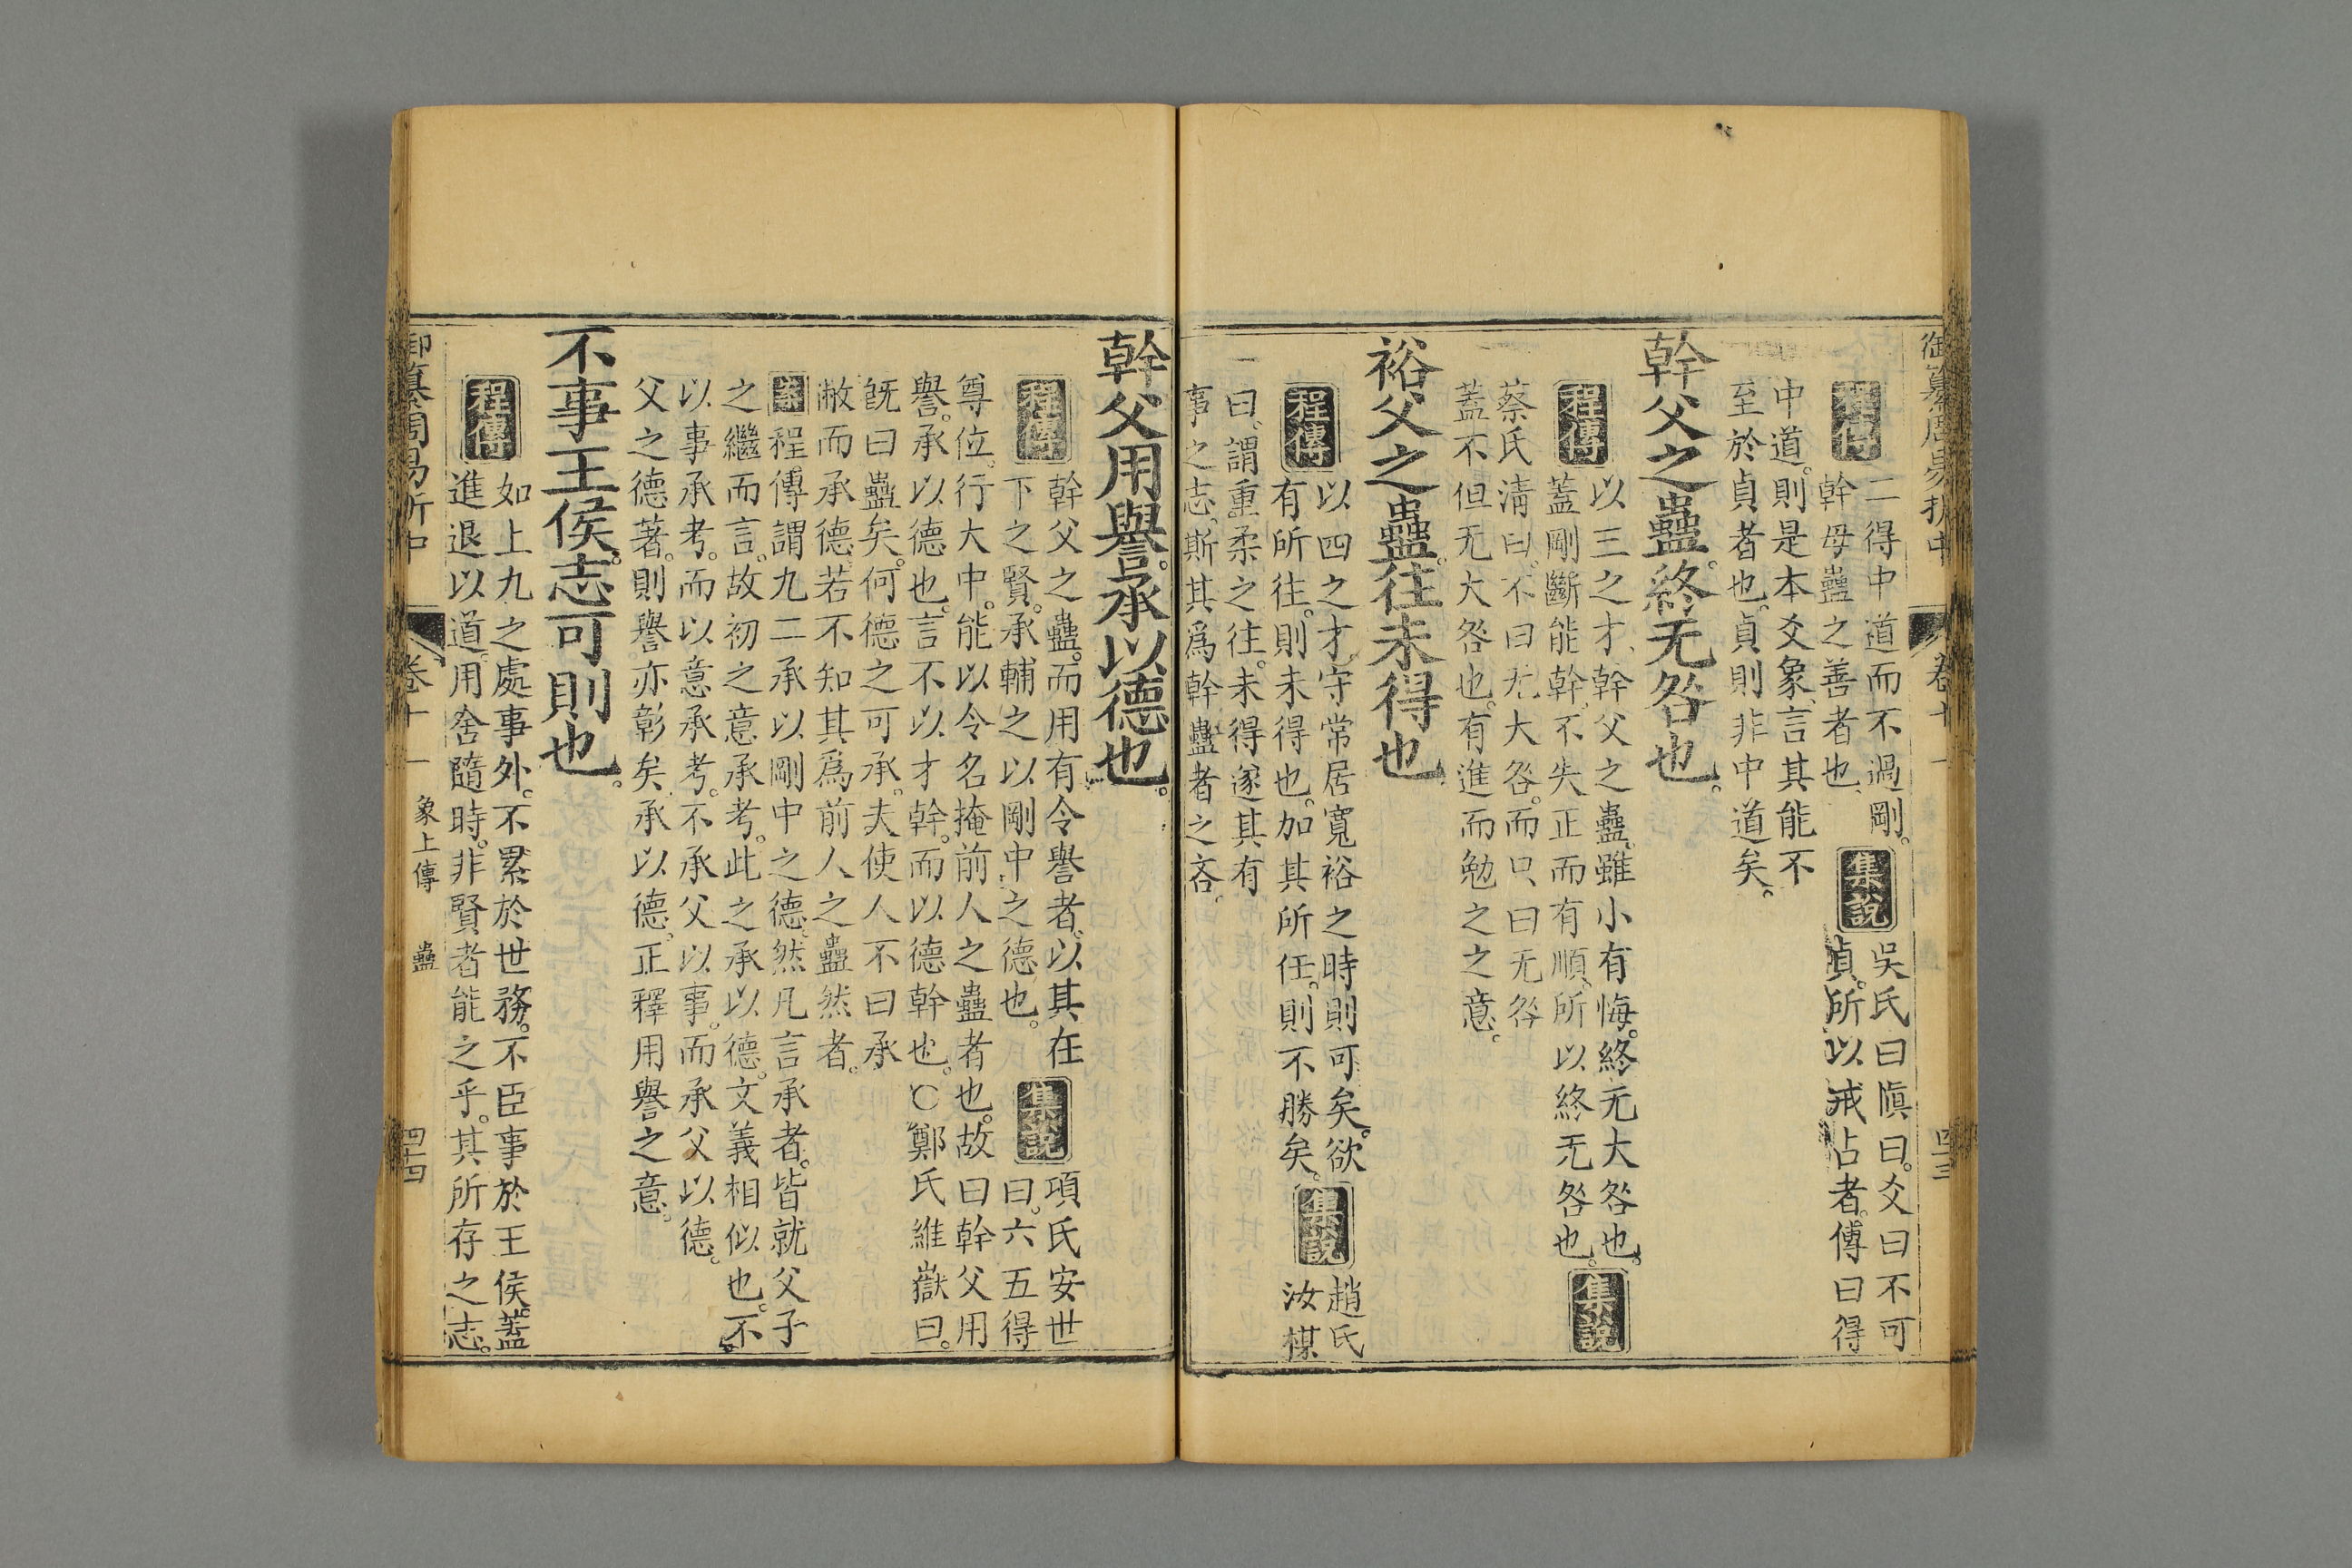 御纂周易折中 卷十一 四三
程傳 二得中道而不過剛。 集說 吳氏曰愼曰。爻曰不可
幹母蠱之善者也。 貞。所以戒占者。傳曰得
中道。則是本爻象。言其能不
至於貞者也。貞則非中道矣。
幹父之蠱。終无咎也。
程傳 以三之才。幹父之蠱。雖小有悔。終无大咎也。
蓋剛斷能幹。不失正而有順。所以終无咎也。 集說
蔡氏淸曰。不曰无大咎。而只曰无咎
蓋不但无大咎也。有進而勉之之意。
裕父之蠱。往未得也。
程傳 以四之才。守常居寬裕之時則可矣。欲 集說 趙氏
有所往。則未得也。加其所任。則不勝矣。 汝楳
曰。謂重柔之往。未得遂其有
事之志。斯其爲幹蠱者之吝。
幹父用譽。承以德也。
程傳 幹父之蠱。而用有令譽者。以其在 集說 項氏安世
下之賢。承輔之以剛中之德也。 曰。六五得
尊位。行大中。能以令名掩前人之蠱者也。故曰幹父用
譽。承以德也。言不以才幹。而以德幹也。○鄭氏維嶽曰。
旣曰蠱矣。何德之可承。夫使人不曰承
敝而承德。若不知其爲前人之蠱然者。
案 程傳謂九二承以剛中之德。然凡言承者。皆就父子
之繼而言。故初之意承考。此之承以德。文義相似也。不
以事承考。而以意承考。不承父以事。而承父以德。
父之德著。則譽亦彰矣。承以德。正釋用譽之意。
不事王侯。志可則也。
程傳 如上九之處事外。不累於世務。不臣事於王侯。蓋
進退以道。用舍隨時。非賢者能之乎。其所存之志。
御纂周易折中 卷十一 象上傳 蠱 四十四